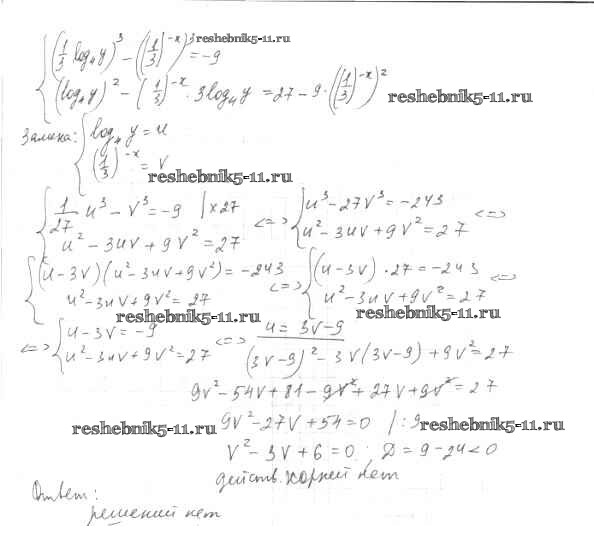 { (1/3 log₄y)³ − ((1/3)^(−x))³ = −9 reshebnik5-11.ru
(log₄y)² − (1/3)^(−x) · 3log₄y = 27 − 9·((1/3)^(−x))² reshebnik5-11.ru
Замена: { log₄y = u
(1/3)^(−x) = v reshebnik5-11.ru
{ 1/27 u³ − v³ = −9 | ×27 <=> { u³ − 27v³ = −243 <=>
u² − 3uv + 9v² = 27 u² − 3uv + 9v² = 27
{ (u − 3v)(u² − 3uv + 9v²) = −243 <=> { (u − 3v) · 27 = −243 <=>
u² − 3uv + 9v² = 27 u² − 3uv + 9v² = 27
reshebnik5-11.ru reshebnik5-11.ru
<=> { u − 3v = −9 <=> u = 3v − 9
u² − 3uv + 9v² = 27 (3v − 9)² − 3v(3v − 9) + 9v² = 27
9v² − 54v + 81 − 9v² + 27v + 9v² = 27
reshebnik5-11.ru 9v² − 27v + 54 = 0 | : 9 reshebnik5-11.ru
v² − 3v + 6 = 0; D = 9 − 24 < 0
действ. корней нет
Ответ:
решений нет